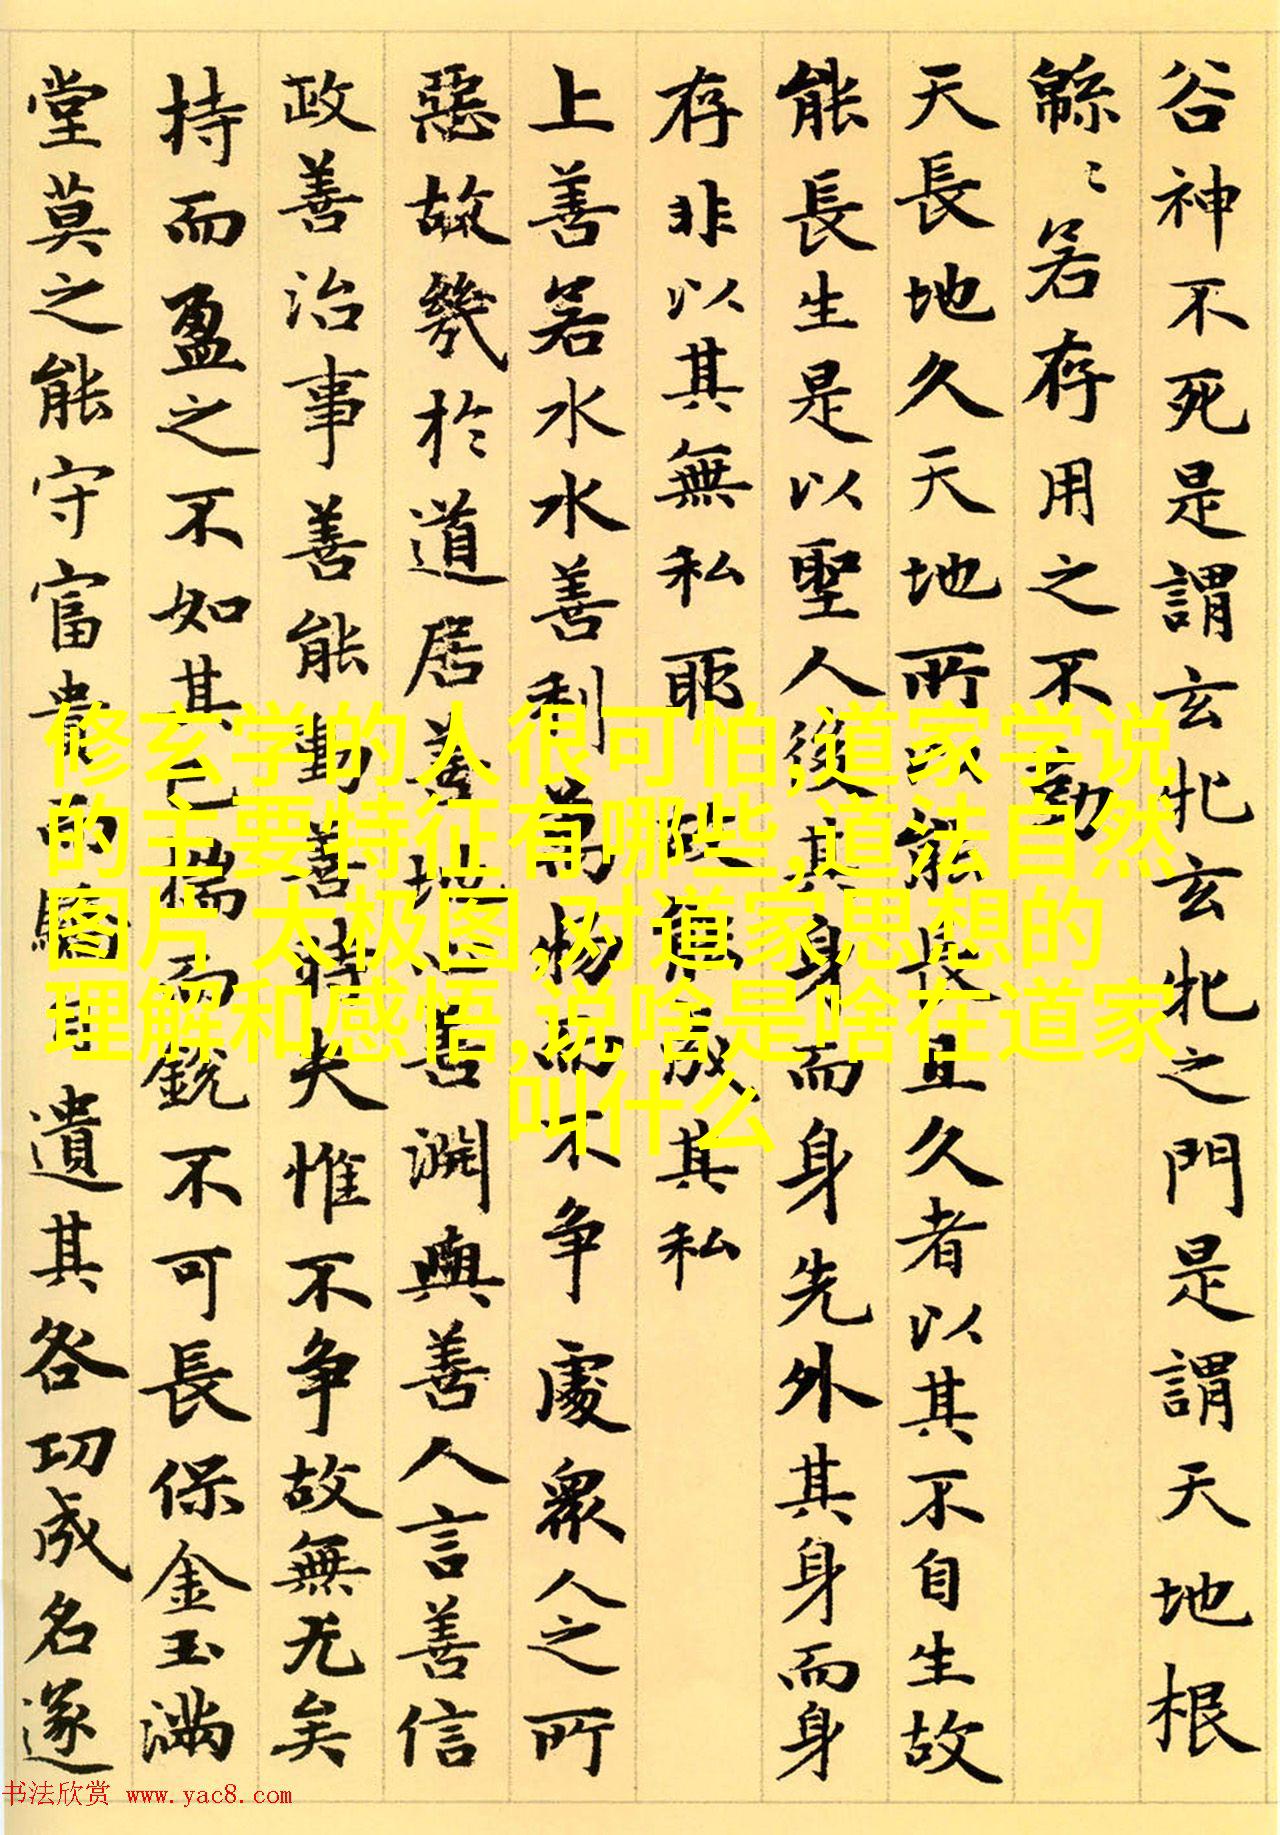 谷神不死是謂玄牝玄牝之門是謂天地根
緜〻若存用之不勤
天長地久天地所以能長且久者以其不自生故
能長生是以聖人後其身而身先外其身而身
存非以其無私耶故能成其私
上善若水水善利萬物而不争處衆人之所
惡故幾於道居善地心善淵與善人言善信
政善治事善能動善時夫惟不争故無尤矣
持而盈之不如其已揣而銳不可長保金玉滿
堂莫之能守富貴而驕自遺其咎功成名遂
修玄学的人很可怕,道家学说
的主要特征有哪些,道法自然
图片 太极图,对道家思想的
理解和感悟,说啥是啥在道家
叫什么
书法欣赏 www.yac8.com